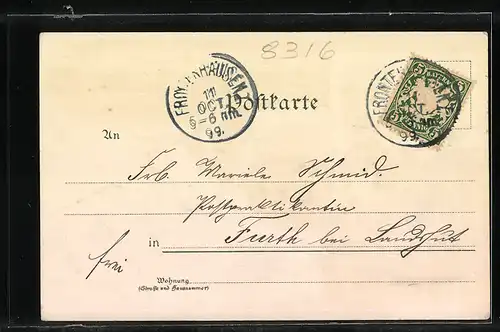 8316
FRONTENHAUSEN
11
OCT.
5-6 NM.
99.
Postkarte
FRONTENHAUSEN
BAYERN
An
Frl. Schmid.
Postpraktikantin
in Furth bei Landshut
frei
Wohnung
(Straße und Hausnummer)